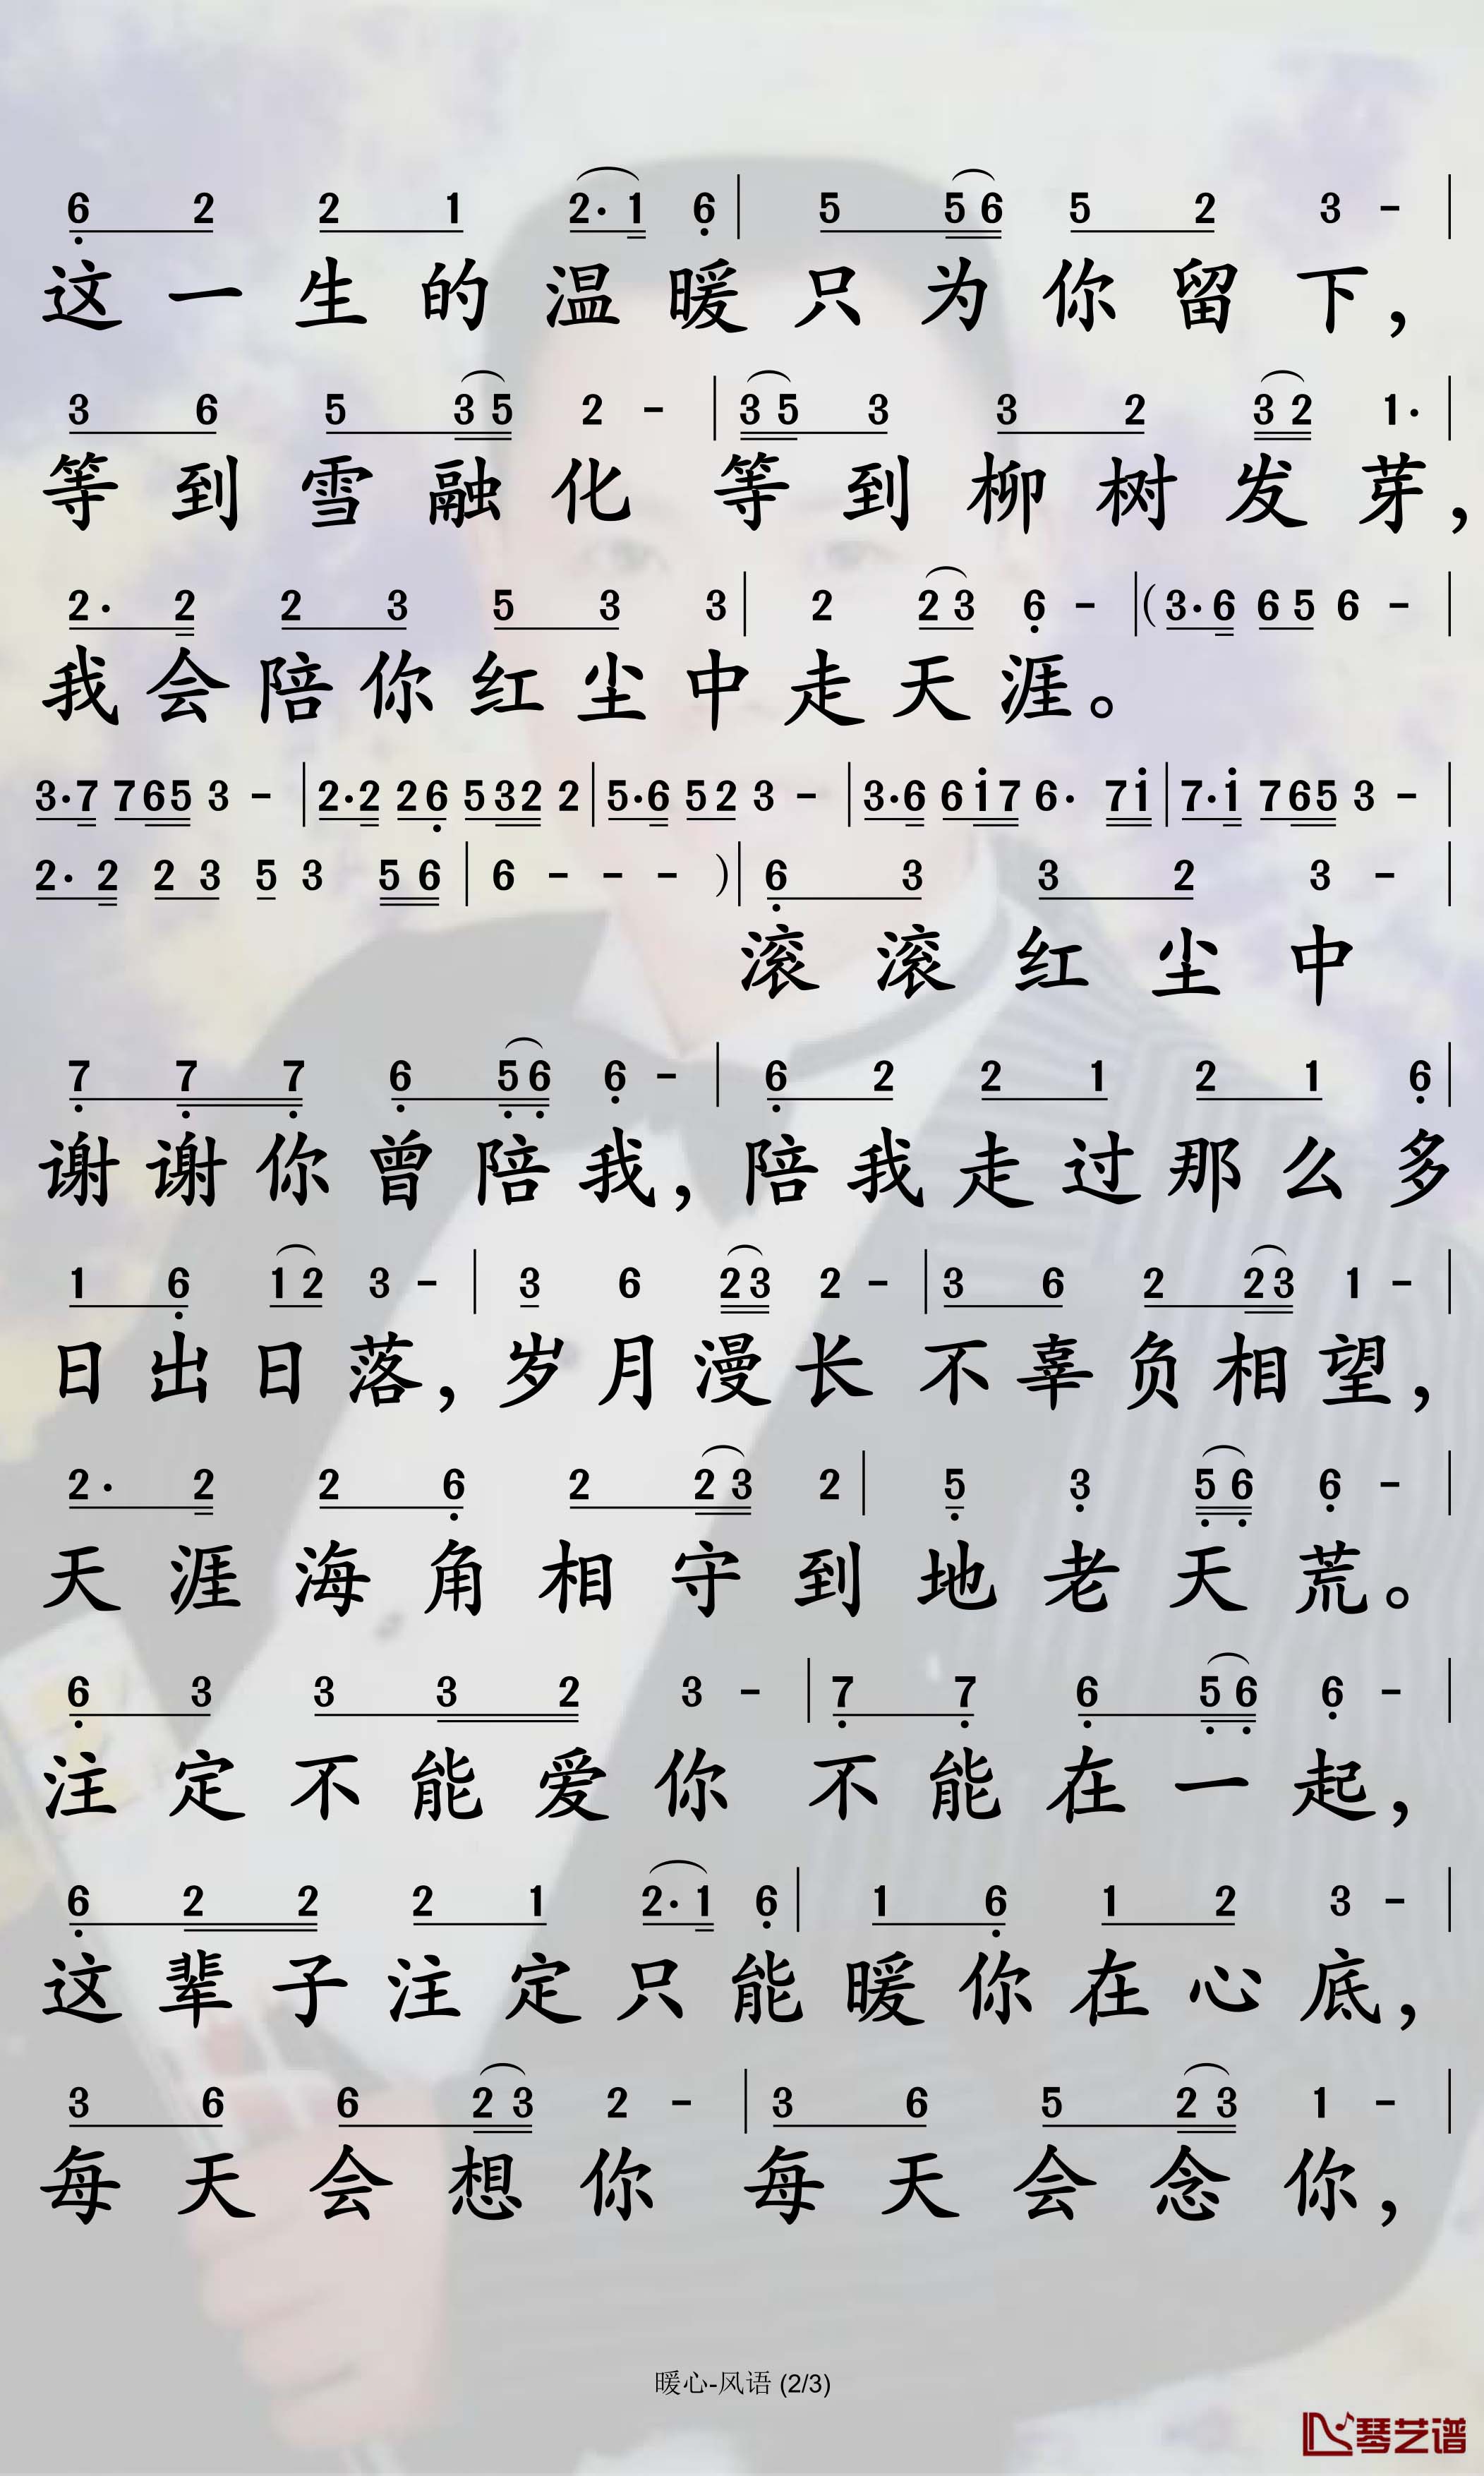 6 2 2 1 2· 1 6 | 5 5 6 5 2 3 - |
这一生的温暖只为你留下，
3 6 5 3 5 2 - | 3 5 3 3 2 3 2 1· |
等到雪融化 等到柳树发芽，
2· 2 2 3 5 3 3 | 2 2 3 6 - | (3·6 6 5 6 - |
我会陪你红尘中走天涯。
3·7 765 3 - | 2·2 26 532 2 | 5·6 52 3 - | 3·6 6i7 6· 7i | 7·i 765 3 - |
2· 2 2 3 5 3 5 6 | 6 - - - ) | 6 3 3 2 3 - |
滚滚红尘中
7 7 7 6 5 6 6 - | 6 2 2 1 2 1 6 |
谢谢你曾陪我，陪我走过那么多
1 6 1 2 3 - | 3 6 2 3 2 - | 3 6 2 2 3 1 - |
日出日落，岁月漫长 不辜负相望，
2· 2 2 6 2 2 3 2 | 5 3 5 6 6 - |
天涯海角相守到地老天荒。
6 3 3 3 2 3 - | 7 7 6 5 6 6 - |
注定不能爱你 不能在一起，
6 2 2 2 1 2· 1 6 | 1 6 1 2 3 - |
这辈子注定只能暖你在心底，
3 6 6 2 3 2 - | 3 6 5 2 3 1 - |
每天会想你 每天会念你，
暖心-风语 (2/3)
琴艺谱